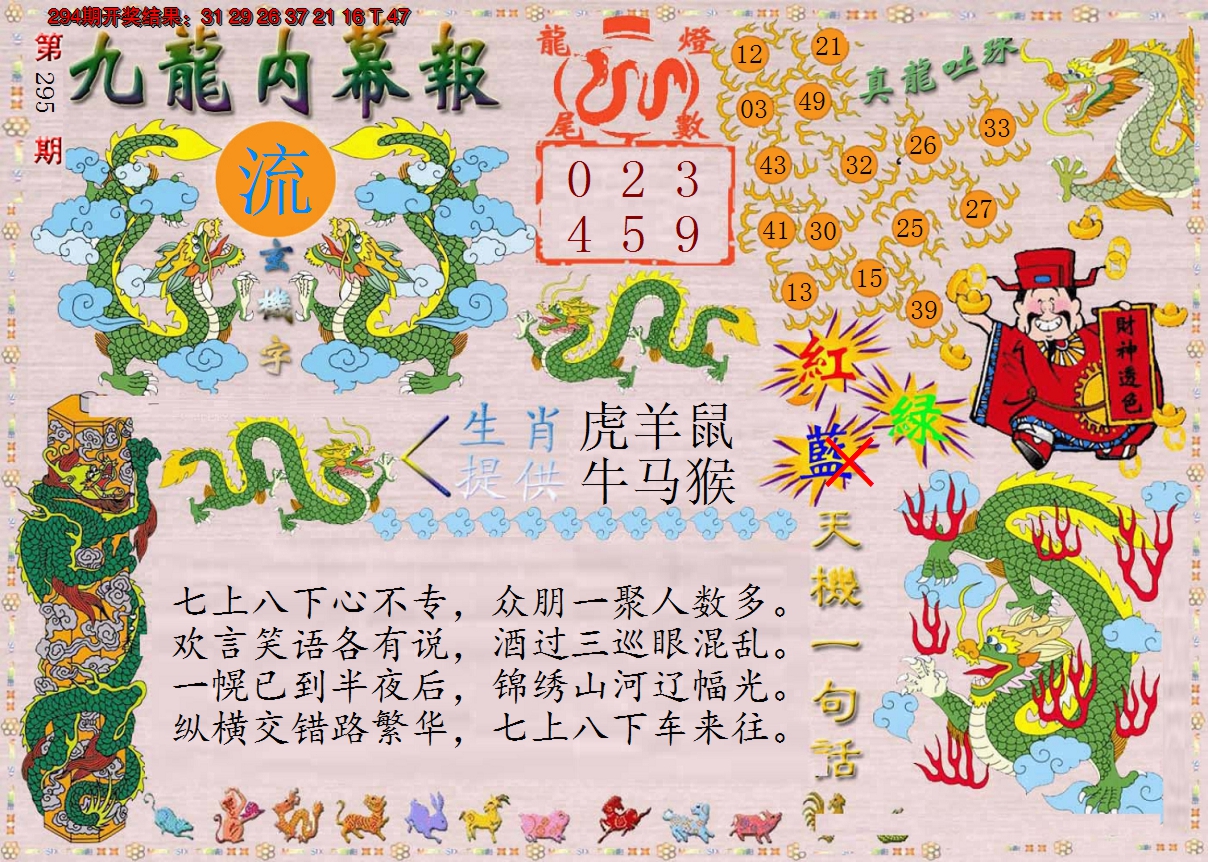 294期开奖结果：31 29 26 37 21 16 T 47
第
295
期
九龍内幕報
流
玄
機
字
龍燈
尾數
0 2 3
4 5 9
真龍吐珠
12
21
03
49
43
32
26
33
41
30
25
27
13
15
39
財神透色
紅
綠
藍
生肖
提供
虎羊鼠
牛马猴
天機一句話
七上八下心不专，众朋一聚人数多。
欢言笑语各有说，酒过三巡眼混乱。
一幌已到半夜后，锦绣山河辽幅光。
纵横交错路繁华，七上八下车来往。